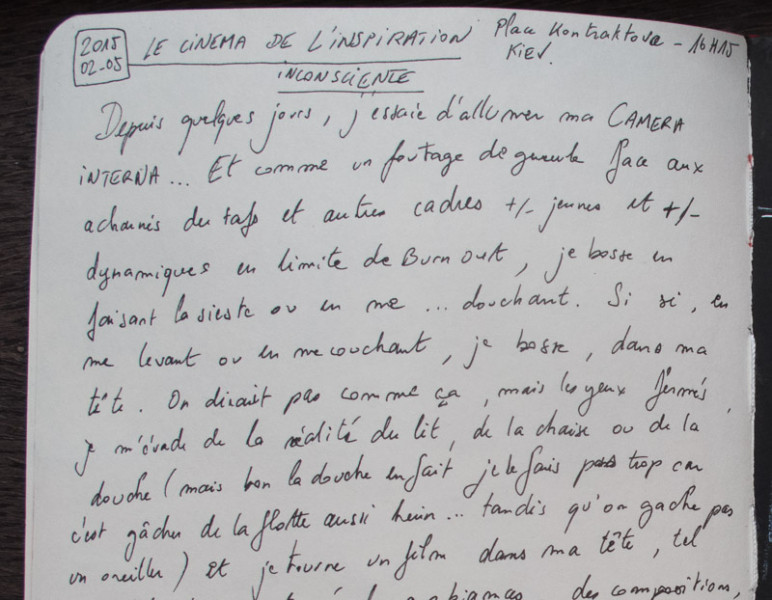 2015
02-05
LE CINEMA DE L'INSPIRATION
INCONSCIENTE
Place Kontraktova - 16H15
KIEV.
Depuis quelques jours, j'essaie d'allumer ma CAMERA
INTERNA... Et comme un foutage de gueule face aux
acharnés du taf et autres cadres +/- jeunes et +/-
dynamiques en limite de Burn out, je bosse en
faisant la sieste ou en me... douchant. Si si, en
me levant ou en me couchant, je bosse, dans ma
tête. On dirait pas comme ça, mais les yeux fermés,
je m'évade de la réalité du lit, de la chaise ou de la
douche (mais bon la douche en fait je le fais pas trop car
c'est gâcher de la flotte aussi hein... tandis qu'on gache pas
un oreiller) et je tourne un film dans ma tête, tel
des composition,